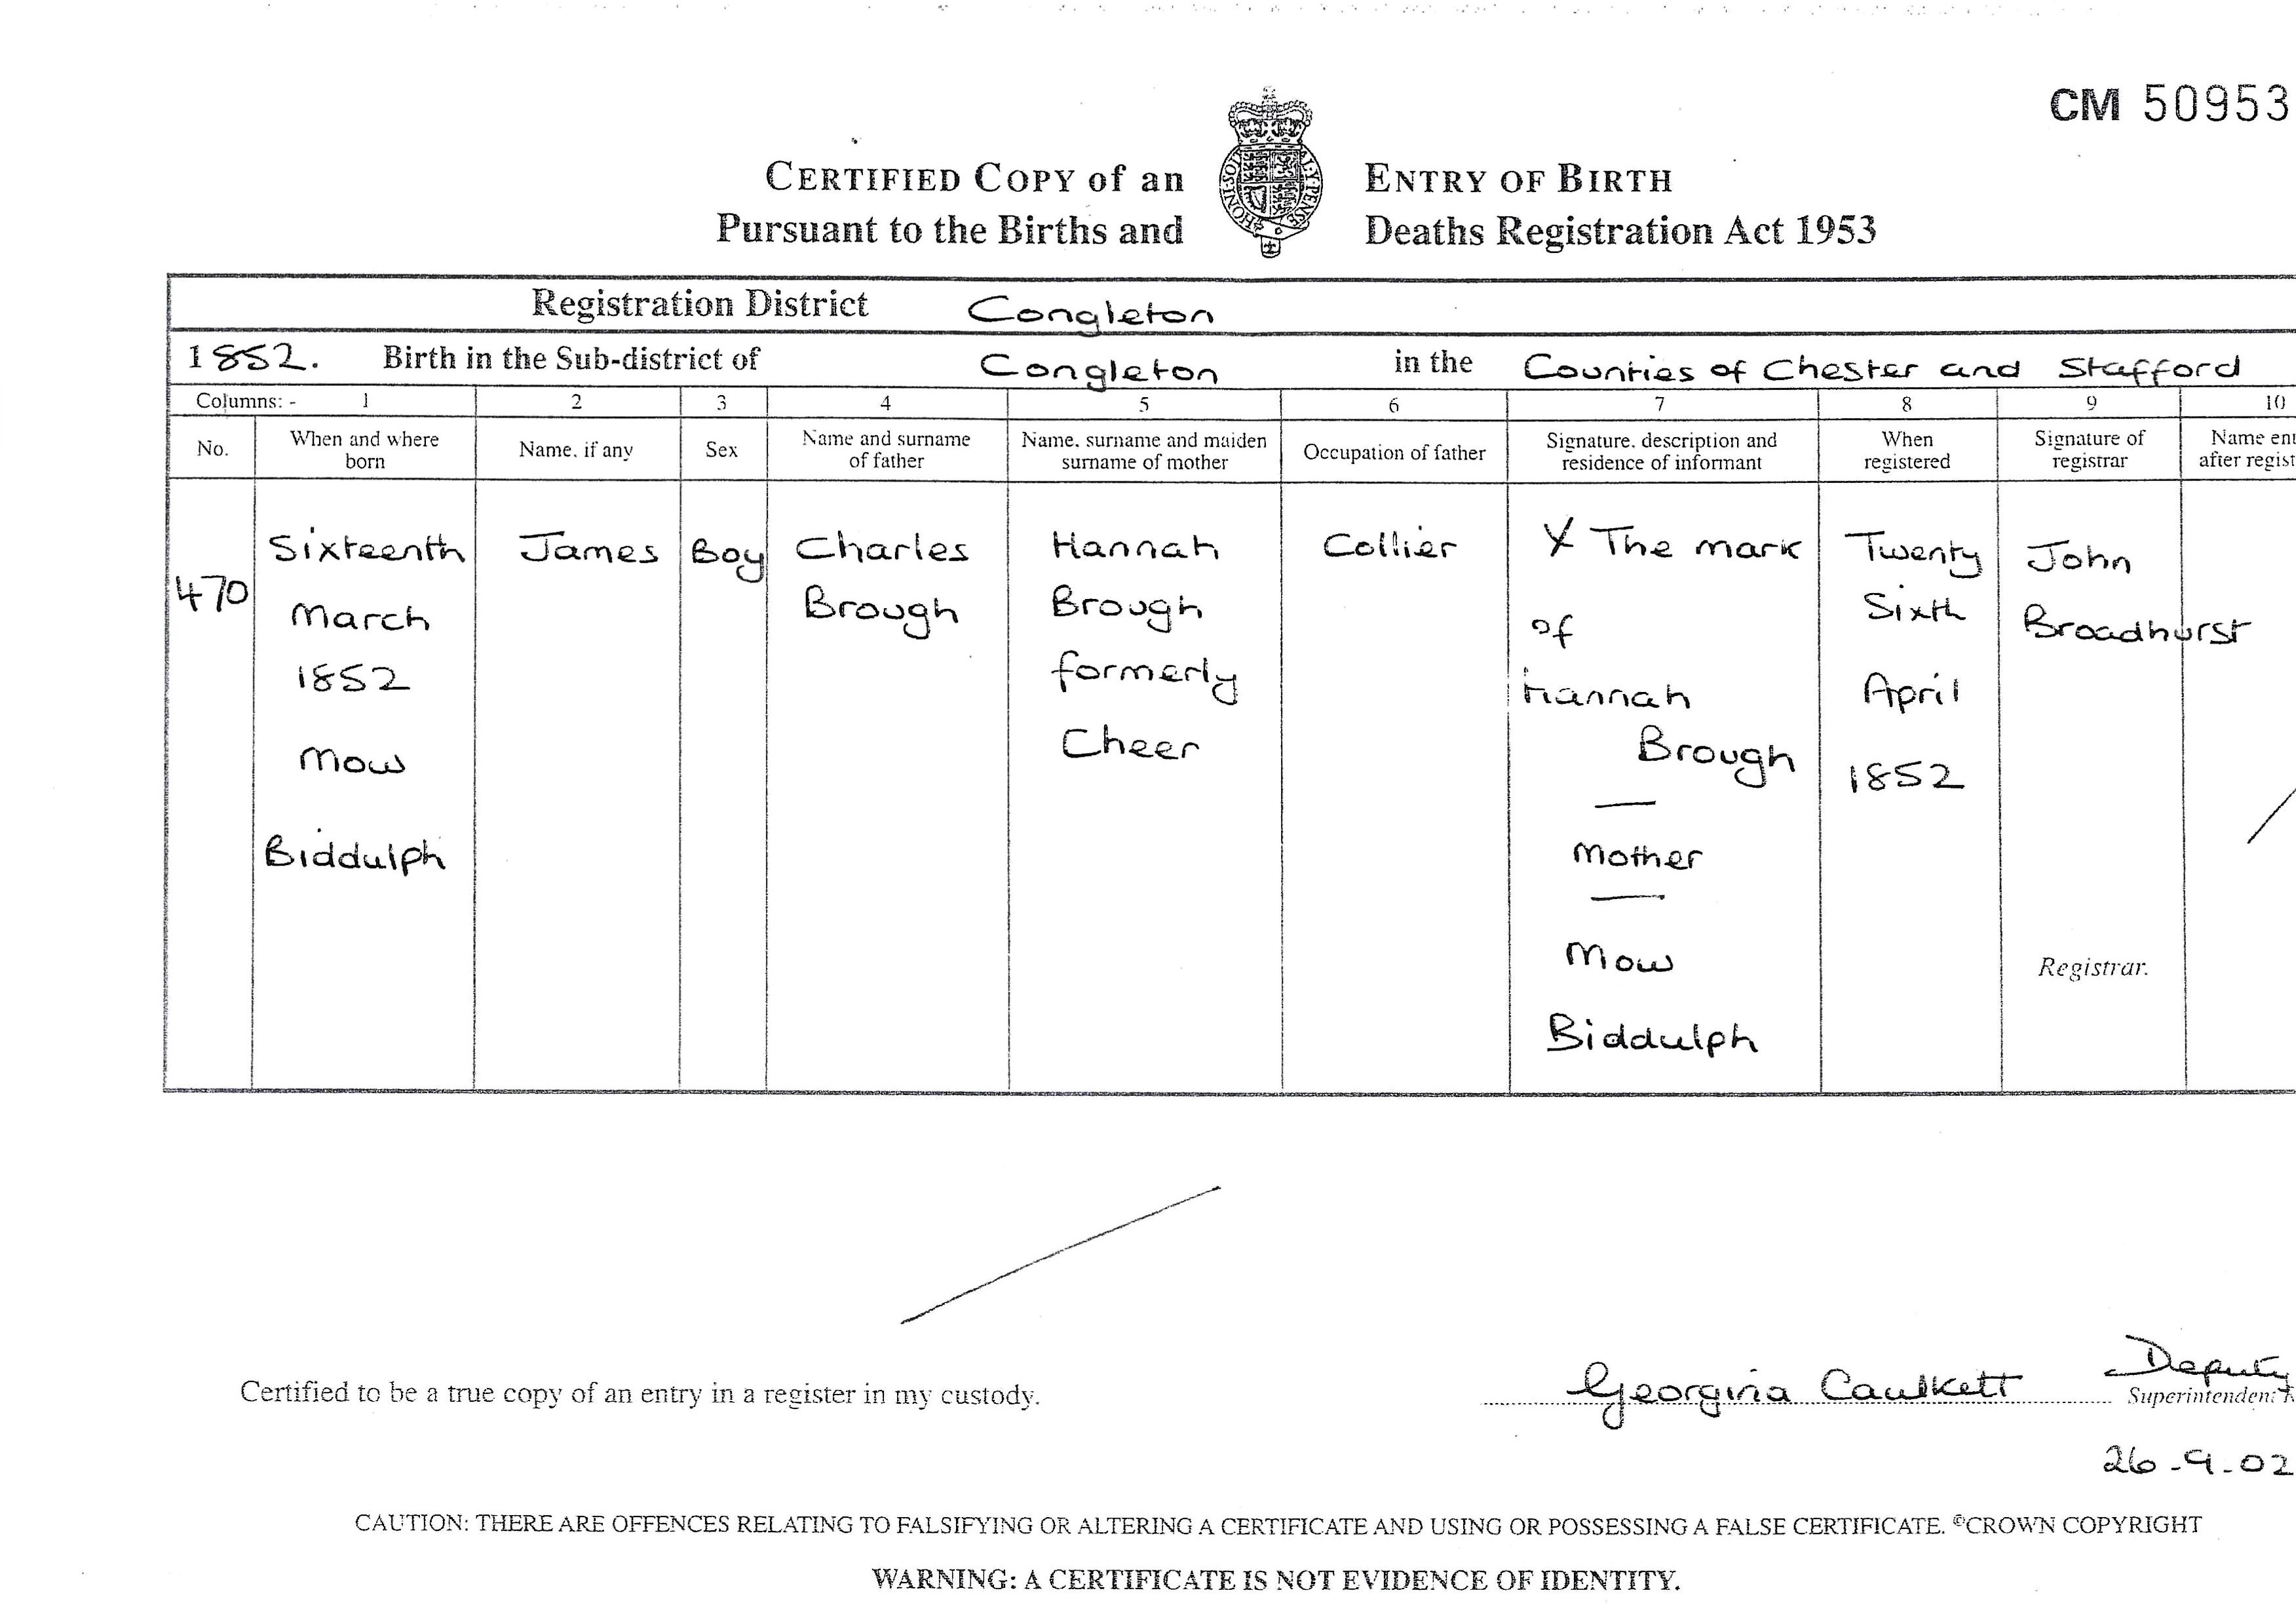 CM 50953
CERTIFIED COPY of an ENTRY OF BIRTH
Pursuant to the Births and Deaths Registration Act 1953
HONI·SOIT AL·Y·PENSE
Registration District Congleton
1852. Birth in the Sub-district of Congleton in the Counties of Chester and Stafford
Columns: - 1 2 3 4 5 6 7 8 9 10
No.
When and where
born
Name, if any
Sex
Name and surname
of father
Name, surname and maiden
surname of mother
Occupation of father
Signature, description and
residence of informant
When
registered
Signature of
registrar
Name
after
470
Sixteenth
March
1852
Mow
Biddulph
James
Boy
Charles
Brough
Hannah
Brough
formerly
Cheer
Collier
X The mark
of
Hannah
Brough
Mother
Mow
Biddulph
Twenty
Sixth
April
1852
John
Broadhurst
Registrar.
Certified to be a true copy of an entry in a register in my custody.
Georgina Caulkett
Deputy
Superintendent
26-9-02
CAUTION: THERE ARE OFFENCES RELATING TO FALSIFYING OR ALTERING A CERTIFICATE AND USING OR POSSESSING A FALSE CERTIFICATE. ©CROWN COPYRIGHT
WARNING: A CERTIFICATE IS NOT EVIDENCE OF IDENTITY.